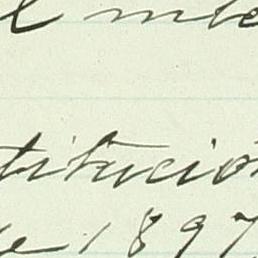 l inte
titució
e 1897